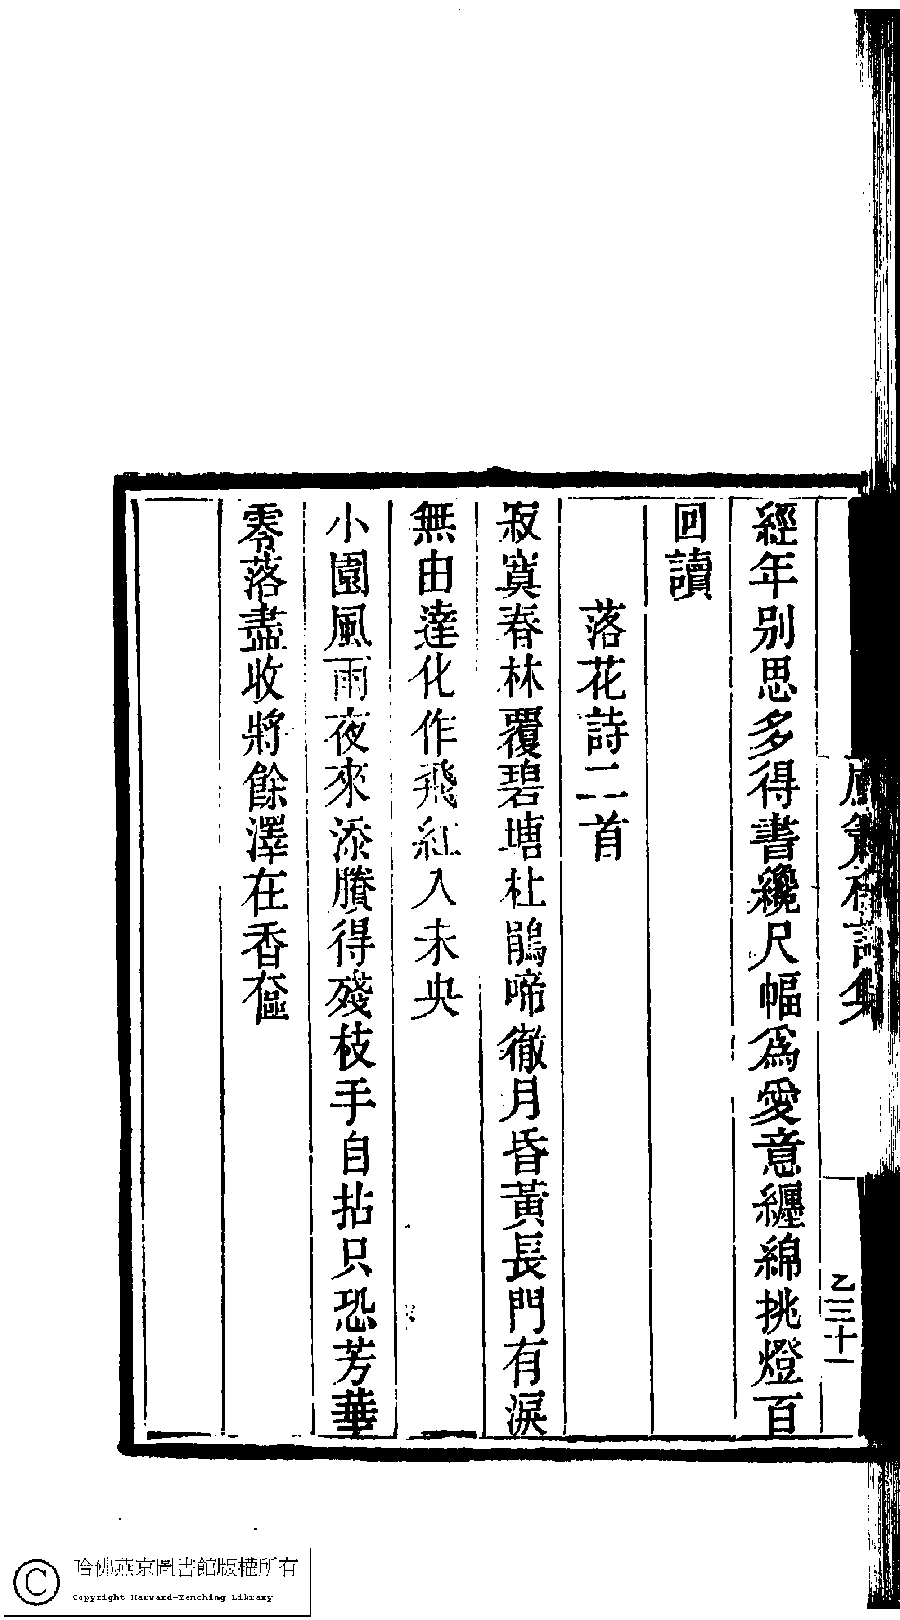 經年別思多得書纔尺幅爲愛意纏綿挑燈百
回讀
落花詩二首
寂寞春林覆碧塘杜鵑啼徹月昏黃長門有淚
無由達化作飛紅入未央
小園風雨夜來添賸得殘枝手自拈只恐芳華
零落盡收將餘澤在香奩
乙三十一
哈佛燕京圖書館版權所有
Copyright Harvard-Yenching Library